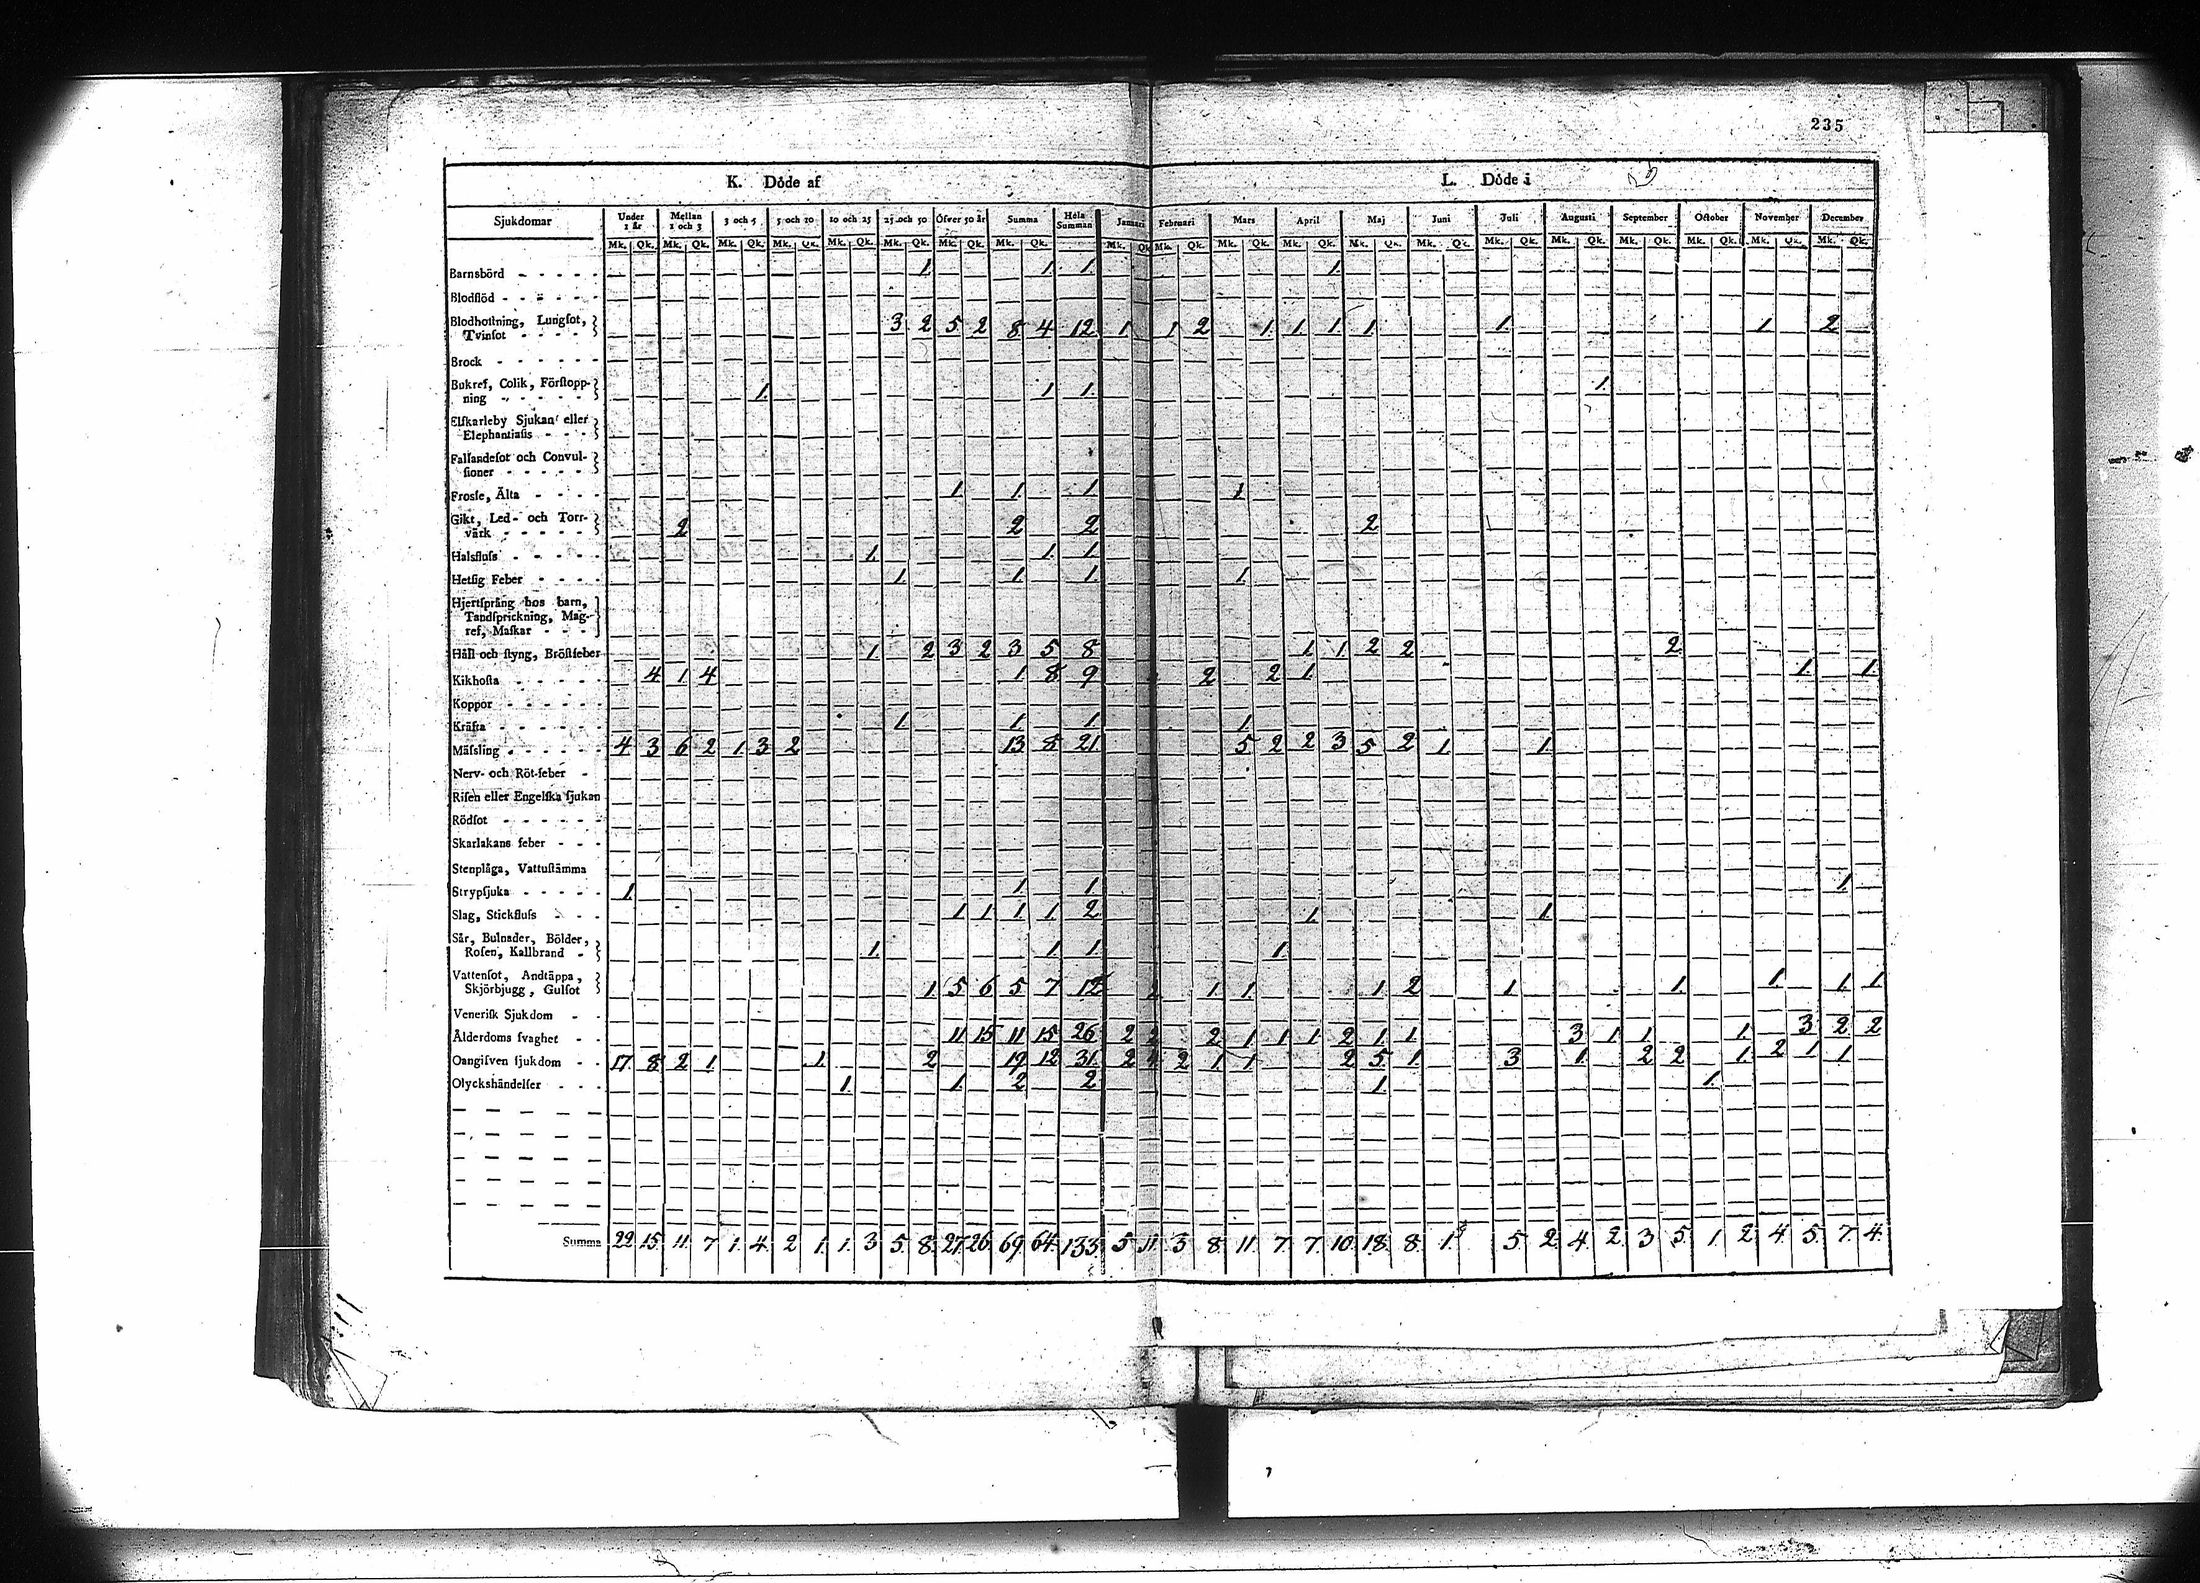 235
K. Döde af L. Döde i
Sjukdomar Under 1 år Mellan 1 och 3 3 och 5 5 och 10 10 och 25 25 och 50 Öfver 50 år Summa Hela Summan Januari Februari Mars April Maj Juni Juli Augusti September October November December
Mk. Qk. Mk. Qk. Mk. Qk. Mk. Qk. Mk. Qk. Mk. Qk. Mk. Qk. Mk. Qk. Mk. Qk. Mk. Qk. Mk. Qk. Mk. Qk. Mk. Qk. Mk. Qk. Mk. Qk. Mk. Qk. Mk. Qk. Mk. Qk. Mk. Qk. Mk. Qk.
Barnsbörd 1. 1. 1. 1.
Blodflöd
Blodhostning, Lungsot,
Tvinsot 3 2 5 2 8 4 12 1 1 2 1 1 1 1 1. 1. 2
Brock
Bukref, Colik, Förstopp-
ning 1. 1 1. 1.
Elfkarleby Sjukan eller
Elephantiasis
Fallandesot och Convul-
sioner
Frossa, Älta 1 1. 1 1
Gikt, Led- och Torr-
värk 2 2 2 2
Halsfluss 1. 1. 1.
Hetsig Feber 1. 1 1. 1.
Hjertsprång hos barn,
Tandsprickning, Mag-
ref, Maskar
Håll och styng, Bröstfeber 1. 2 3 2 3 5 8 1 1. 2 2 2
Kikhosta 4 1 4 1 8 9 2 2 1 1. 1.
Koppor
Kräfta 1. 1. 1 1.
Mässling 4 3 6 2 1. 3 2 13 8 21. 5 2 2 3 5 2 1. 1.
Nerv- och Röt-feber
Risen eller Engelska sjukan
Rödsot
Skarlakans feber
Stenplåga, Vattustämma
Strypsjuka 1. 1 1. 1.
Slag, Stickfluss 1 1 1 1. 2 1. 1.
Sår, Bulnader, Bölder,
Rosen, Kallbrand 1. 1. 1. 1.
Vattensot, Andtäppa,
Skjörbjugg, Gulsot 1. 5 6 5 7 12 2 1. 1. 1. 2 1. 1. 1. 1. 1
Venerisk Sjukdom
Ålderdoms svaghet 11 15 11 15 26 2 2 2 1 1 1 2 1. 1 3 1 1 1. 3 2 2
Oangifven sjukdom 17. 8 2 1. 1. 2 19 12 31. 2 4 2 1 1. 2 5. 1. 3 1. 2 2 1. 2 1 1.
Olyckshändelser 1. 1. 2 2 1. 1.
Summa 22 15. 11. 7 1. 4 2 1. 1. 3 5. 8 27 26 69. 64 133. 5 11 3 8 11. 7 7. 10 18. 8 1. 5 2 4 2 3 5. 1 2 4. 5. 7. 4.